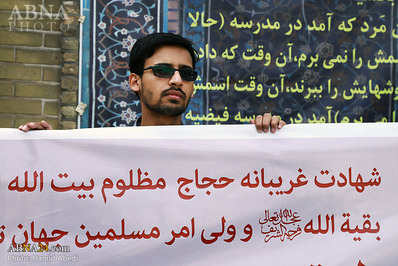 ABNA
PHOTO
ABNA
PHOTO
مَرد که آمد در مدرسه (حالا
سمش را نمی برم، آن وقت که داد
شهایش را ببرند، آن وقت اسمش
می برم) آمد در مدرسه فیضیه
شهادت غریبانه حجاج مظلوم بیت الله
بقیة الله عجل الله تعالی فرجه الشریف و ولی امر مسلمین جهان
ABNA24.com
Photo: Hamid Abedi